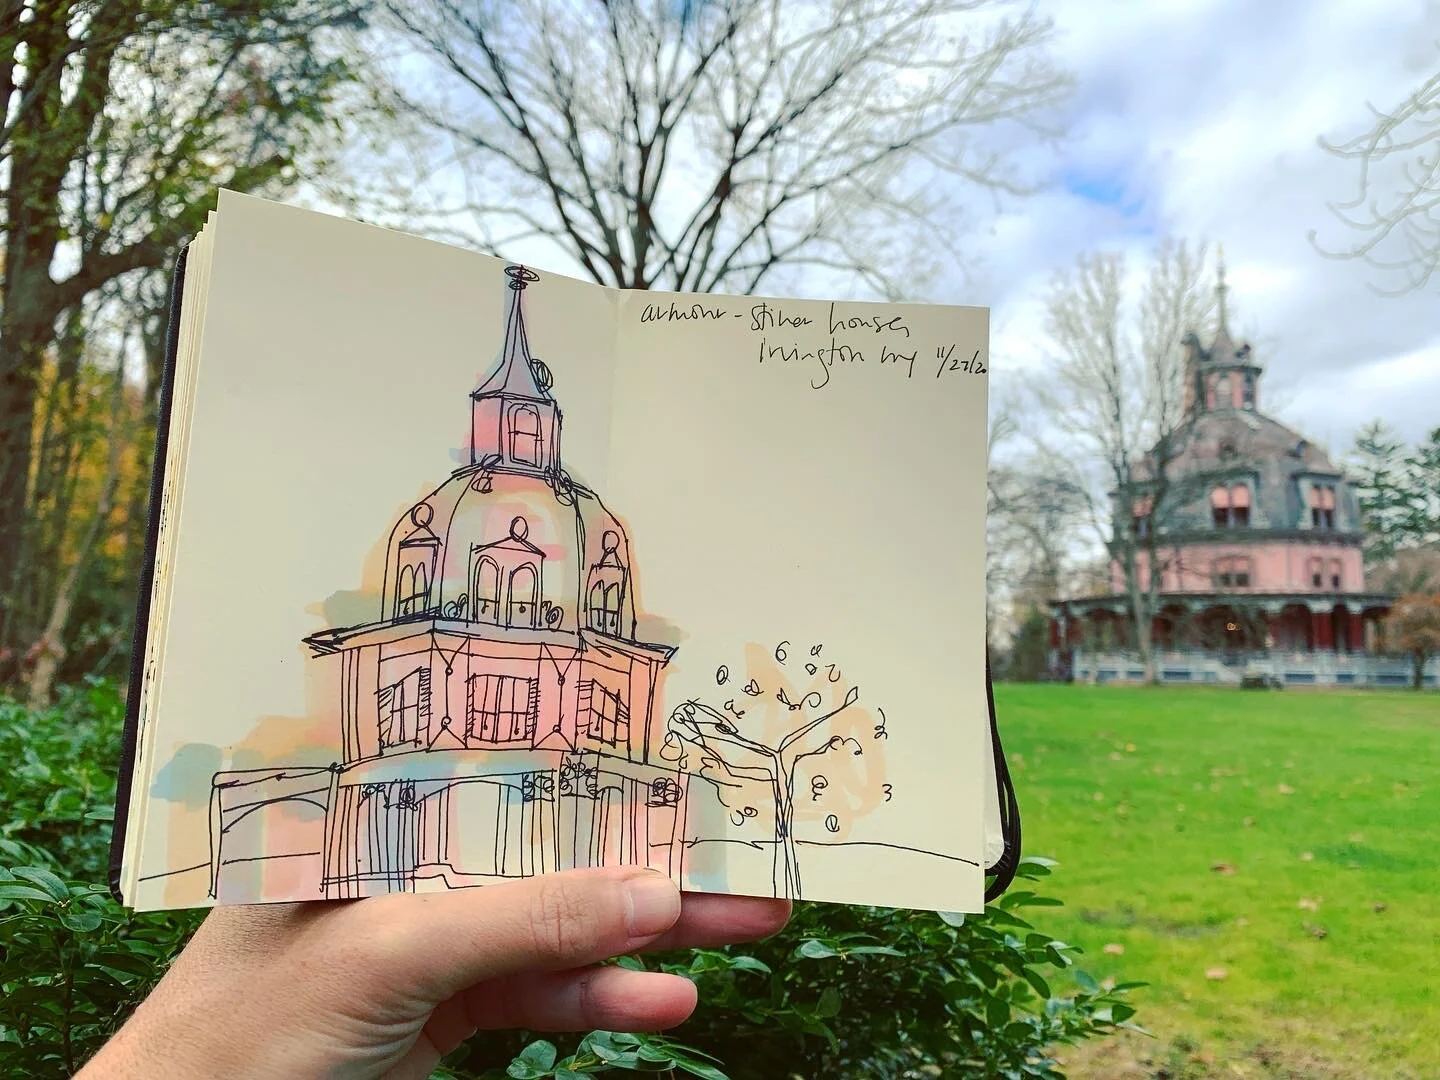 armour-stiner house,
Irvington ny 11/27/20